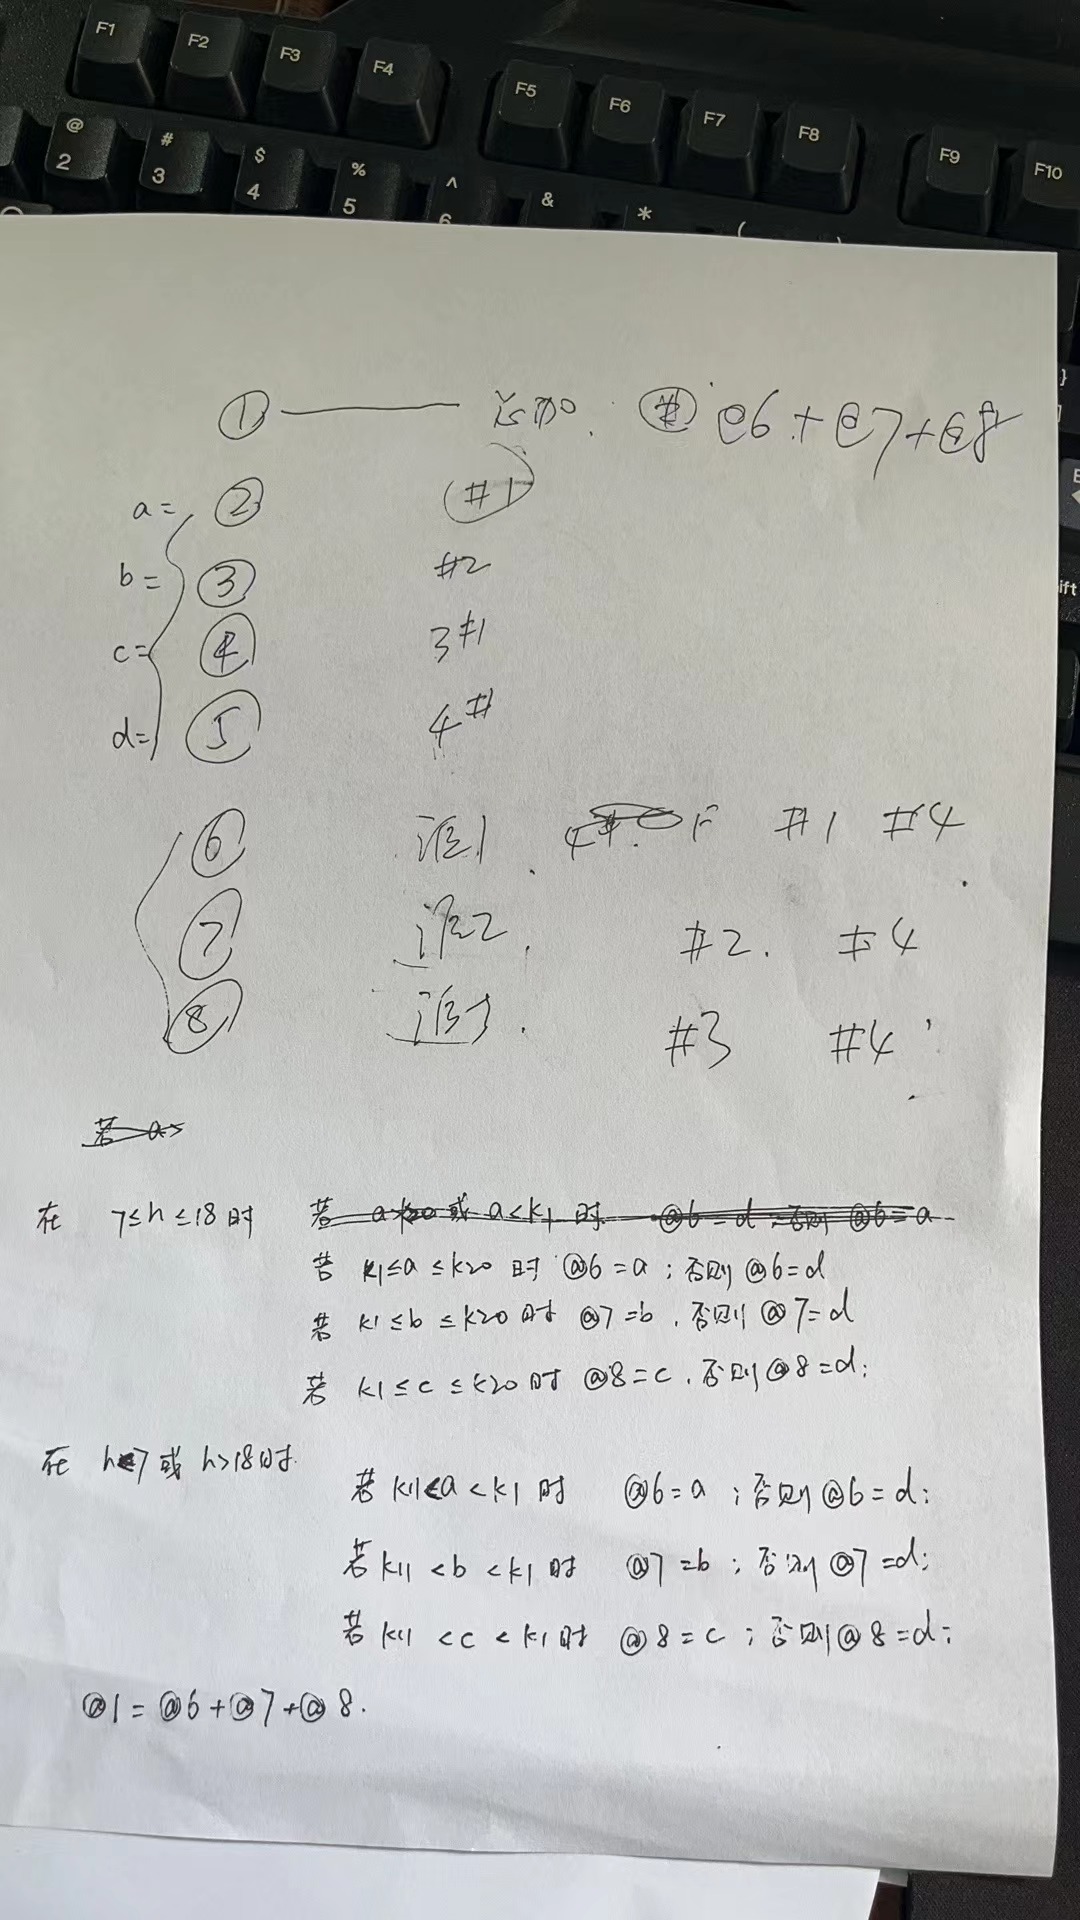 F1 F2 F3 F4 F5 F6 F7 F8 F9 F10
@ # $ % ^ & * (
2 3 4 5 6
① @6+@7+@8
a= ② #1
b= ③ #2
c= ④ 3#1
d= ⑤ 4#
⑥ 准1 #1 #4
⑦ 准2. #2. #4
⑧ 准3. #3 #4
若 a>
在 7≤h≤18时 若 a>k20 或 a<k1 时 @6=d;否则 @6=a
若 k1≤a≤k20 时 @6=a;否则 @6=d
若 k1≤b≤k20 时 @7=b.否则 @7=d
若 k1≤c≤k20 时 @8=c.否则 @8=d;
在 h<7 或 h>18时.
若 k11<a<k1 时 @6=a;否则 @6=d;
若 k11<b<k1 时 @7=b;否则 @7=d;
若 k11<c<k1 时 @8=c;否则 @8=d;
@1=@6+@7+@8.